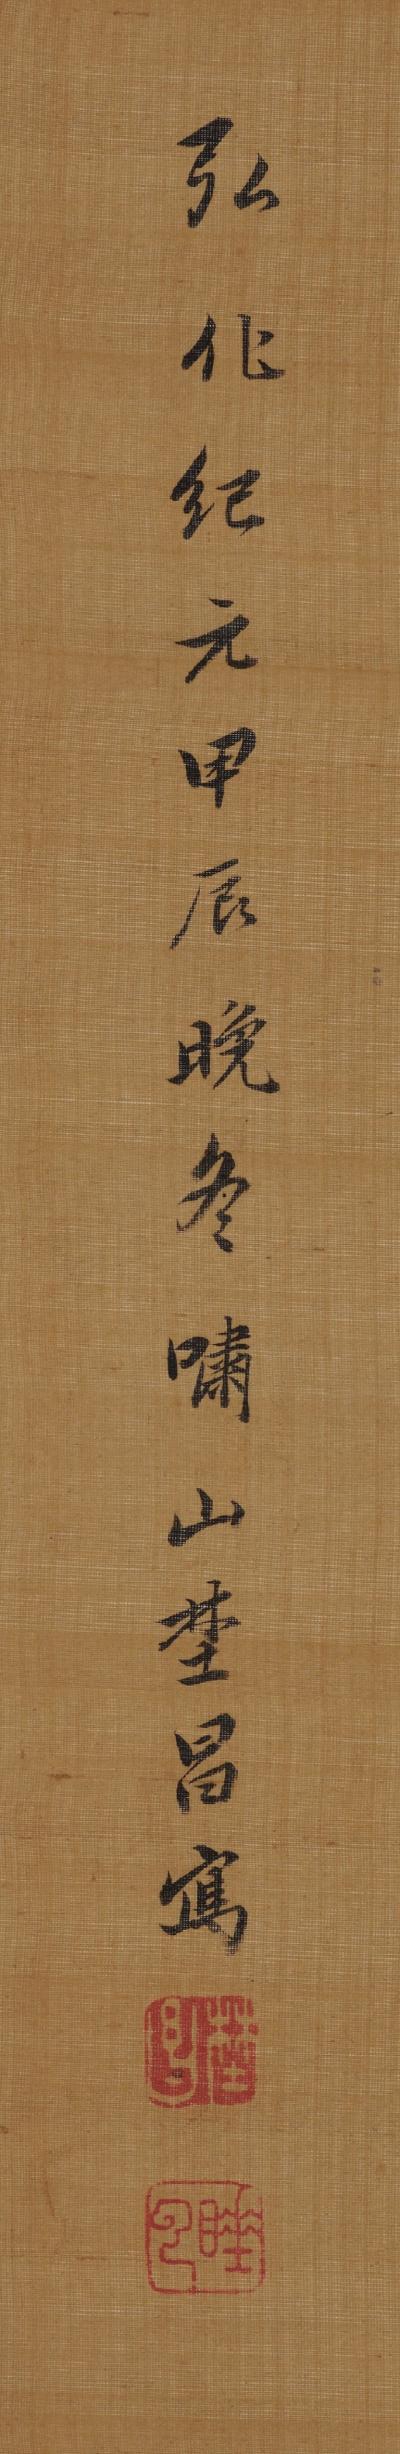 弘化紀元甲辰晚冬嘯山埜昌寫